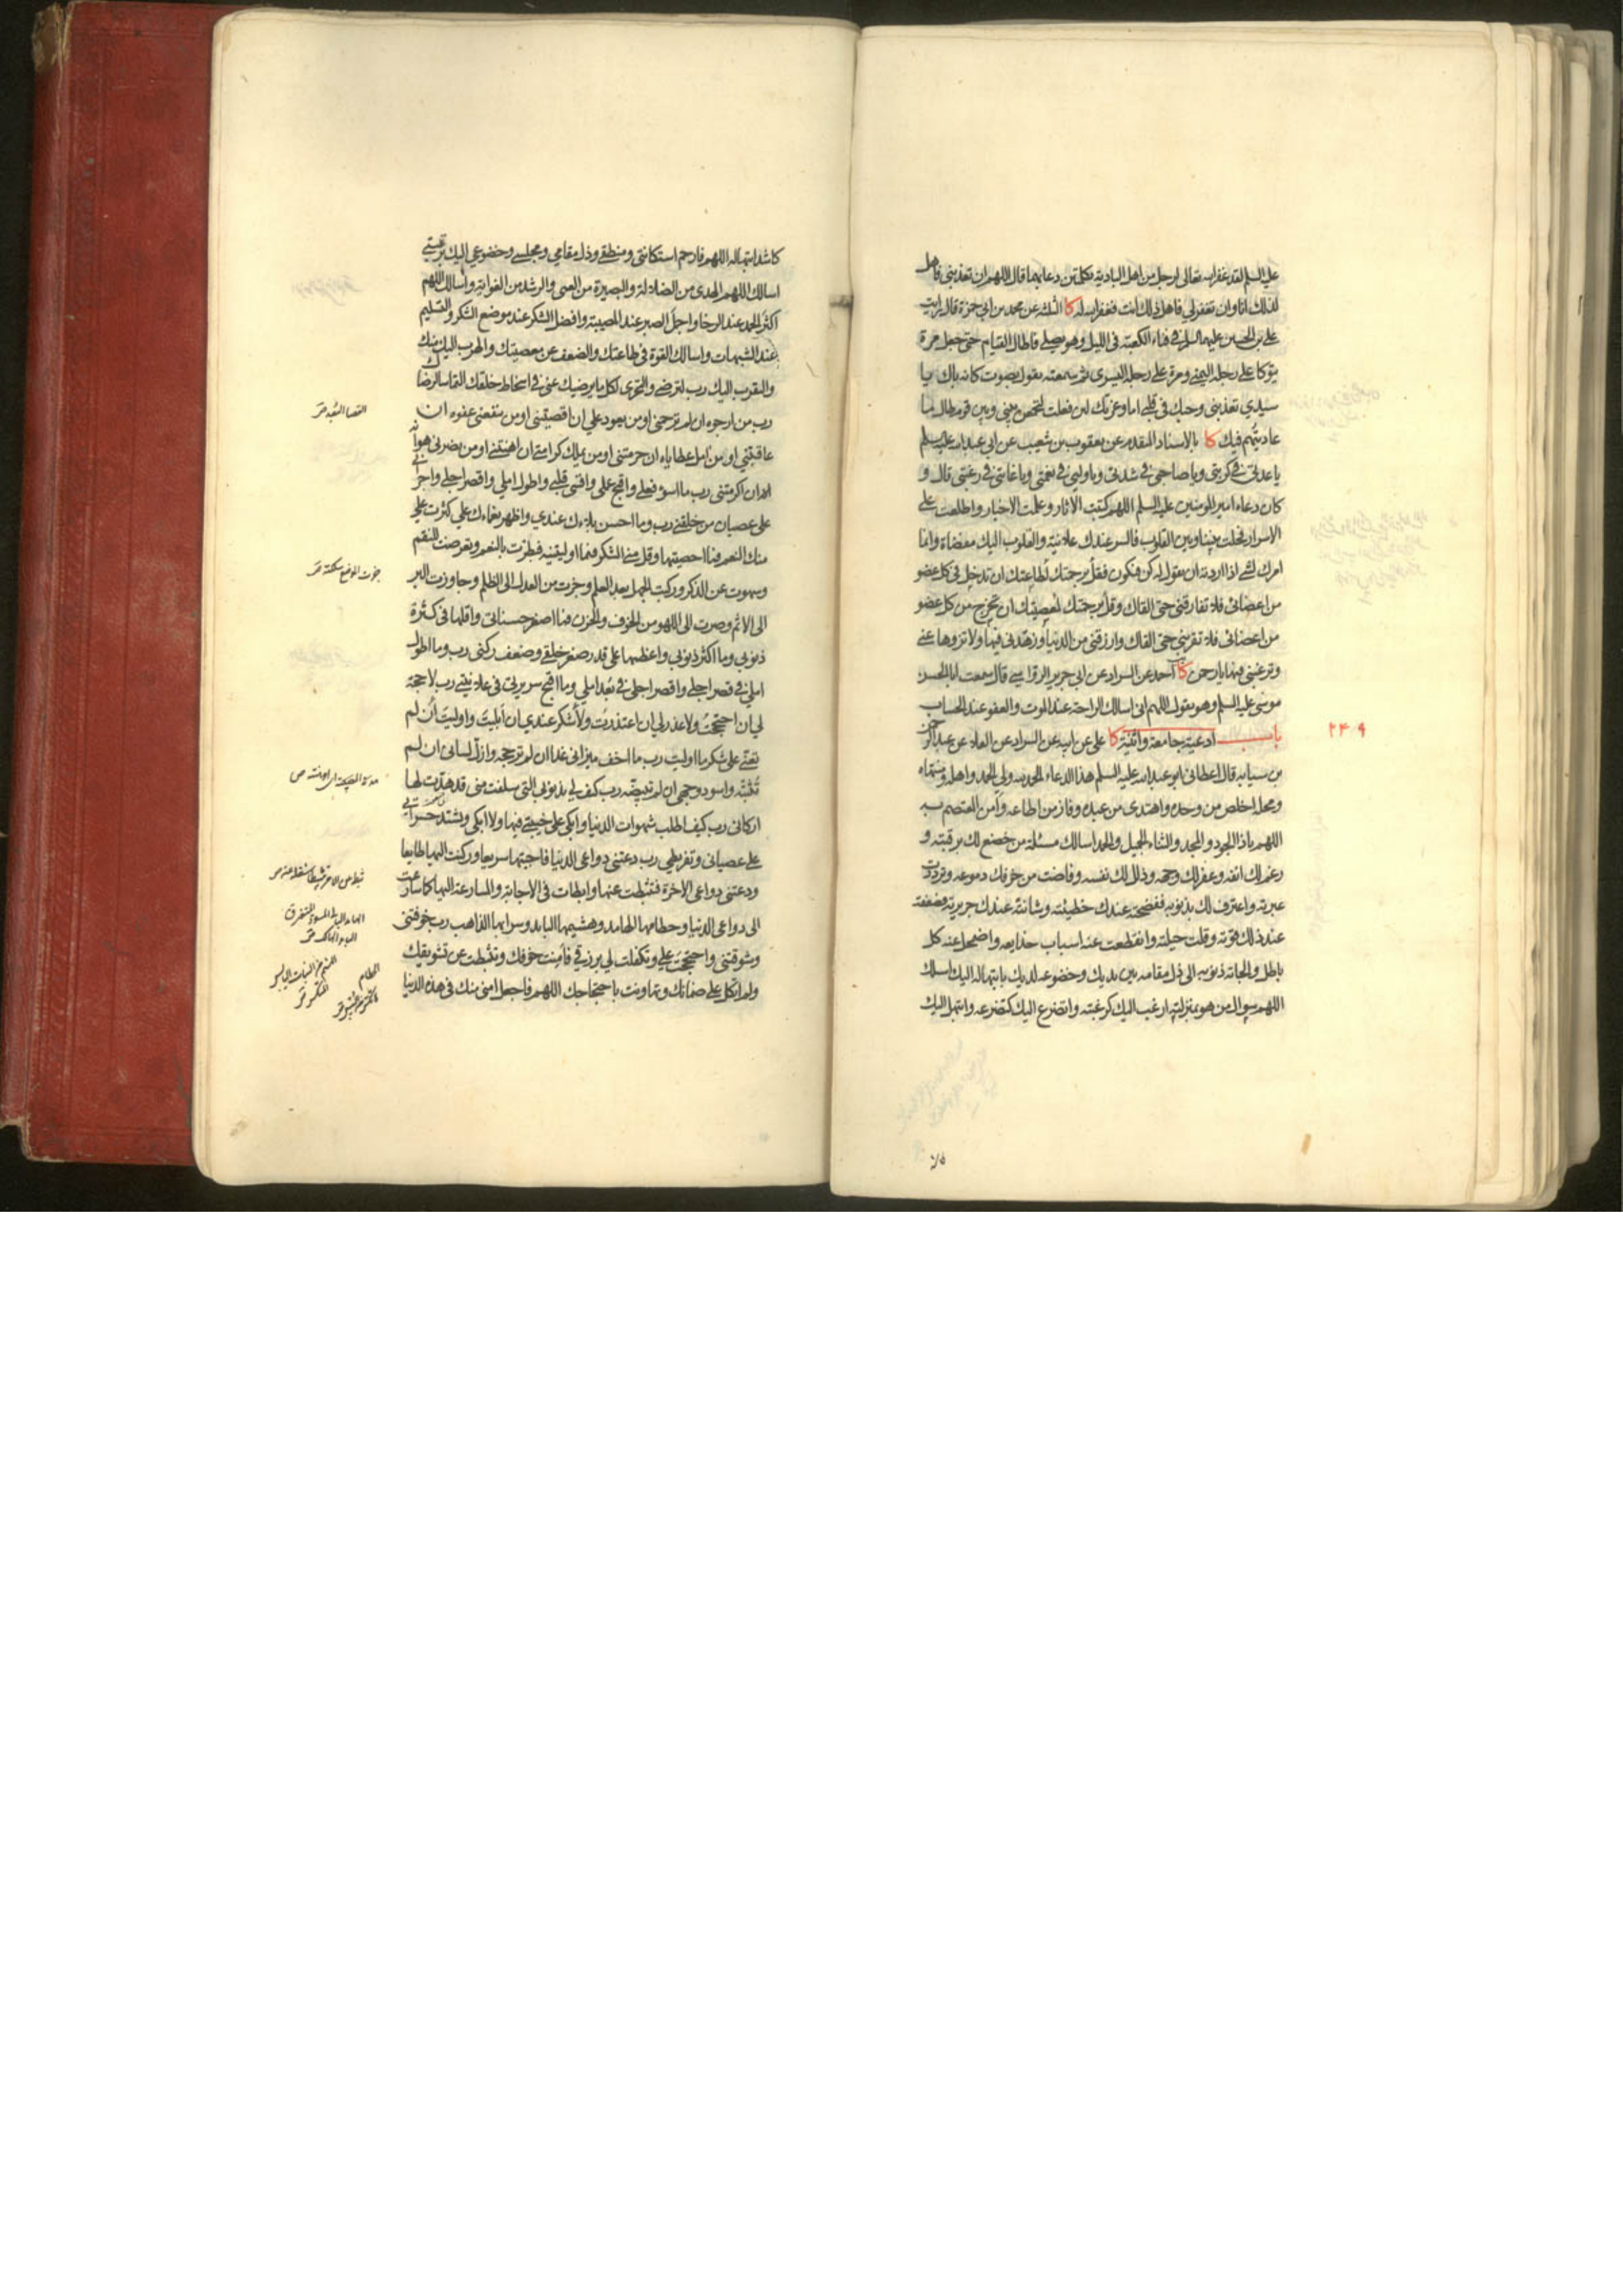 عليه السلم لقد غفر الله تعالى لرجل من اهل البادية بكلمتين دعا بهما قال اللهم ان تعذبني فاهل
لذلك انا وان تغفر لي فاهل ذلك انت فغفر الله له كا الثلثة عن محمد بن ابي حمزة قال رايت
علي بن الحسين عليهما السلم في فناء الكعبة في الليل وهو يصلي فاطال القيام حتى جعل مرة
يتوكا على رجله اليمنى ومرة على رجله اليسرى ثم سمعته يقول بصوت كانه باك يا
سيدي تعذبني وحبك في قلبي اما وعزتك لئن فعلت لتجمعن بيني وبين قوم طال ما
عاديتهم فيك كا بالاسناد المقدم عن يعقوب بن شعيب عن ابي عبد الله عليه السلم
يا عدتي في كربتي ويا صاحبي في شدتي ويا وليي في نعمتي ويا غايتي في رغبتي قال و
كان دعاء امير المؤمنين عليه السلم اللهم كتبت الاثار وعلمت الاخبار واطلعت على
الاسرار فحلت بيننا وبين القلوب فالسر عندك علانية والقلوب اليك مفضاة وانما
امرك لشئ اذا اردته ان يقول له كن فيكون فقل برحمتك لطاعتك ان تدخل في كل عضو
من اعضائي فلا تفارقني حتى القاك وقل برحمتك لمعصيتك ان تخرج من كل عضو
من اعضائي فلا تقربني حتى القاك وارزقني من الدنيا وزهدني فيها ولا تزوها عني
وترغبني فيها يا رحمن كا احمد عن السراد عن ابي جرير الرواسي قال سمعت ابا الحسن
موسى عليه السلم وهو يقول اللهم اني اسالك الراحة عند الموت والعفو عند الحساب
۲۴۹
باب ادعية جامعة واثنية كا علي عن ابيه عن السراد عن العلاء عن عبد الرحمن
بن سيابه قال اعطاني ابو عبد الله عليه السلم هذا الدعاء الحمد لله ولي الحمد واهله ومنتهاه
ومحله اخلص من وحده واهتدى من عبده وفاز من اطاعه وآمن المعتصم به
اللهم يا ذا الجود والمجد والثناء الجميل والحمد اسالك مسئلة من خضع لك برقبته و
رغم لك انفه وعفر لك وجهه وذلل لك نفسه وفاضت من خوفك دموعه وترددت
عبرته واعترف لك بذنوبه وفضحته عندك خطيئته وشانته عندك جريرته وضعفت
عند ذلك قوته وقلت حيلته وانقطعت عنه اسباب خدايعه واضمحل عنه كل
باطل والجأته ذنوبه الى ذل مقامه بين يديك وخضوعه لديك بابتهاله اليك اسالك
اللهم سؤال من هو بمنزلته ارغب اليك كرغبته واتضرع اليك كتضرعه وابتهل اليك
كاشد ابتهاله اللهم فارحم استكانتي ومنطقي وذل مقامي ومجلسي وخضوعي اليك برقبتي
اسالك اللهم الهدى من الضلالة والبصيرة من العمى والرشد من الغواية واسالك اللهم
اكثر الحمد عند الرخا واجمل الصبر عند المصيبة وافضل الشكر عند موضع الشكر والتسليم
عند الشبهات واسالك القوة في طاعتك والضعف عن معصيتك والهرب اليك منك
والتقرب اليك رب لترضى والتحرى لكل ما يرضيك عني في اسخاط خلقك التماسا لرضاك
رب من ارجوه ان لم ترحمني او من يعود علي ان اقصيتني او من ينفعني عفوه ان
عاقبتني او من امل عطاياه ان حرمتني او من يملك كرامتي ان اهنتني او من يضرني هوانه
ان اكرمتني رب ما اسوء فعلي واقبح عملي واقسى قلبي واطول املي واقصر اجلي واجراني
على عصيان من خلقني رب وما احسن بلاءك عندي واظهر نعماءك علي كثرت علي
منك النعم فما احصيتها وقل مني الشكر فيما اوليتنيه فبطرت بالنعم وتعرضت للنقم
وسهوت عن الذكر وركبت الجهل بعد العلم وجزت من العدل الى الظلم وجاوزت البر
الى الاثم وصرت الى اللهو من الخوف والحزن فما اصغر حسناتي واقلها في كثرة
ذنوبي وما اكثر ذنوبي واعظمها على قدر صغر خلقي وضعف ركني رب وما اطول
املي في قصر اجلي واقصر اجلي في بعد املي وما اقبح سريرتي في علانيتي رب لا حجة
لي ان احتججت ولا عذر لي ان اعتذرت ولا شكر عندي ان ابليت واوليت ان لم
تعني على شكر ما اوليت رب ما اخف ميزاني غدا ان لم ترجحه وازل لساني ان لم
تثبته واسود وجهي ان لم تبيضه رب كيف لي بذنوبي التي سلفت مني قد هدت لها
اركاني رب كيف اطلب شهوات الدنيا وابكي على خيبتي فيها ولا ابكي وتشتد حسراتي
على عصياني وتفريطي رب دعتني دواعي الدنيا فاجبتها سريعا وركنت اليها طايعا
ودعتني دواعي الاخرة فتثبطت عنها وابطات في الاجابة والمسارعة اليها كما سارعت
الى دواعي الدنيا وحطامها الهامد وهشيمها البايد وسرابها الذاهب رب خوفتني
وشوقتني واحتججت علي وتكفلت لي برزقي فامنت خوفك وتثبطت عن تشويقك
ولم اتكل على ضمانك وتهاونت باحتجاجك اللهم فاجعل امني منك في هذه الدنيا